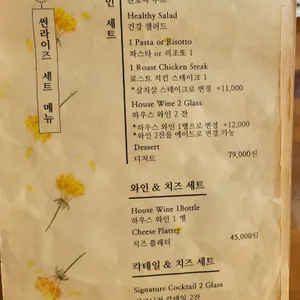 썬라이즈 세트 메뉴
인 세트
Healthy Salad
건강 샐러드
1 Pasta or Risotto
파스타 or 리조또 1
1 Roast Chicken Steak
로스트 치킨 스테이크 1
*삼치살 스테이크로 변경 +11,000
House Wine 2 Glass
하우스 와인 2 잔
*하우스 와인 1병으로 변경 +12,000
*와인 2잔을 에이드로 변경 가능
Dessert
디저트 79,000원
와인 & 치즈 세트
House Wine 1Bottle
하우스 와인 1 병
Cheese Platter
치즈 플래터 45,000원
칵테일 & 치즈 세트
Signature Cocktail 2 Glass